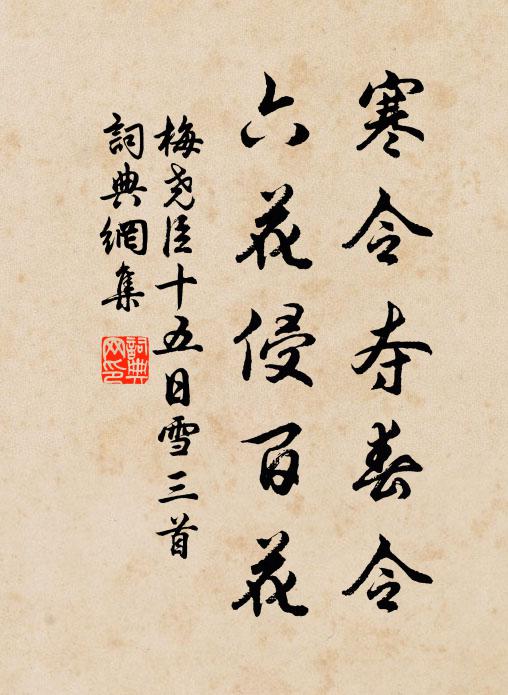 寒令夺春令
六花侵百花
梅尧臣十五日雪三首
詞典網集
詞典网印